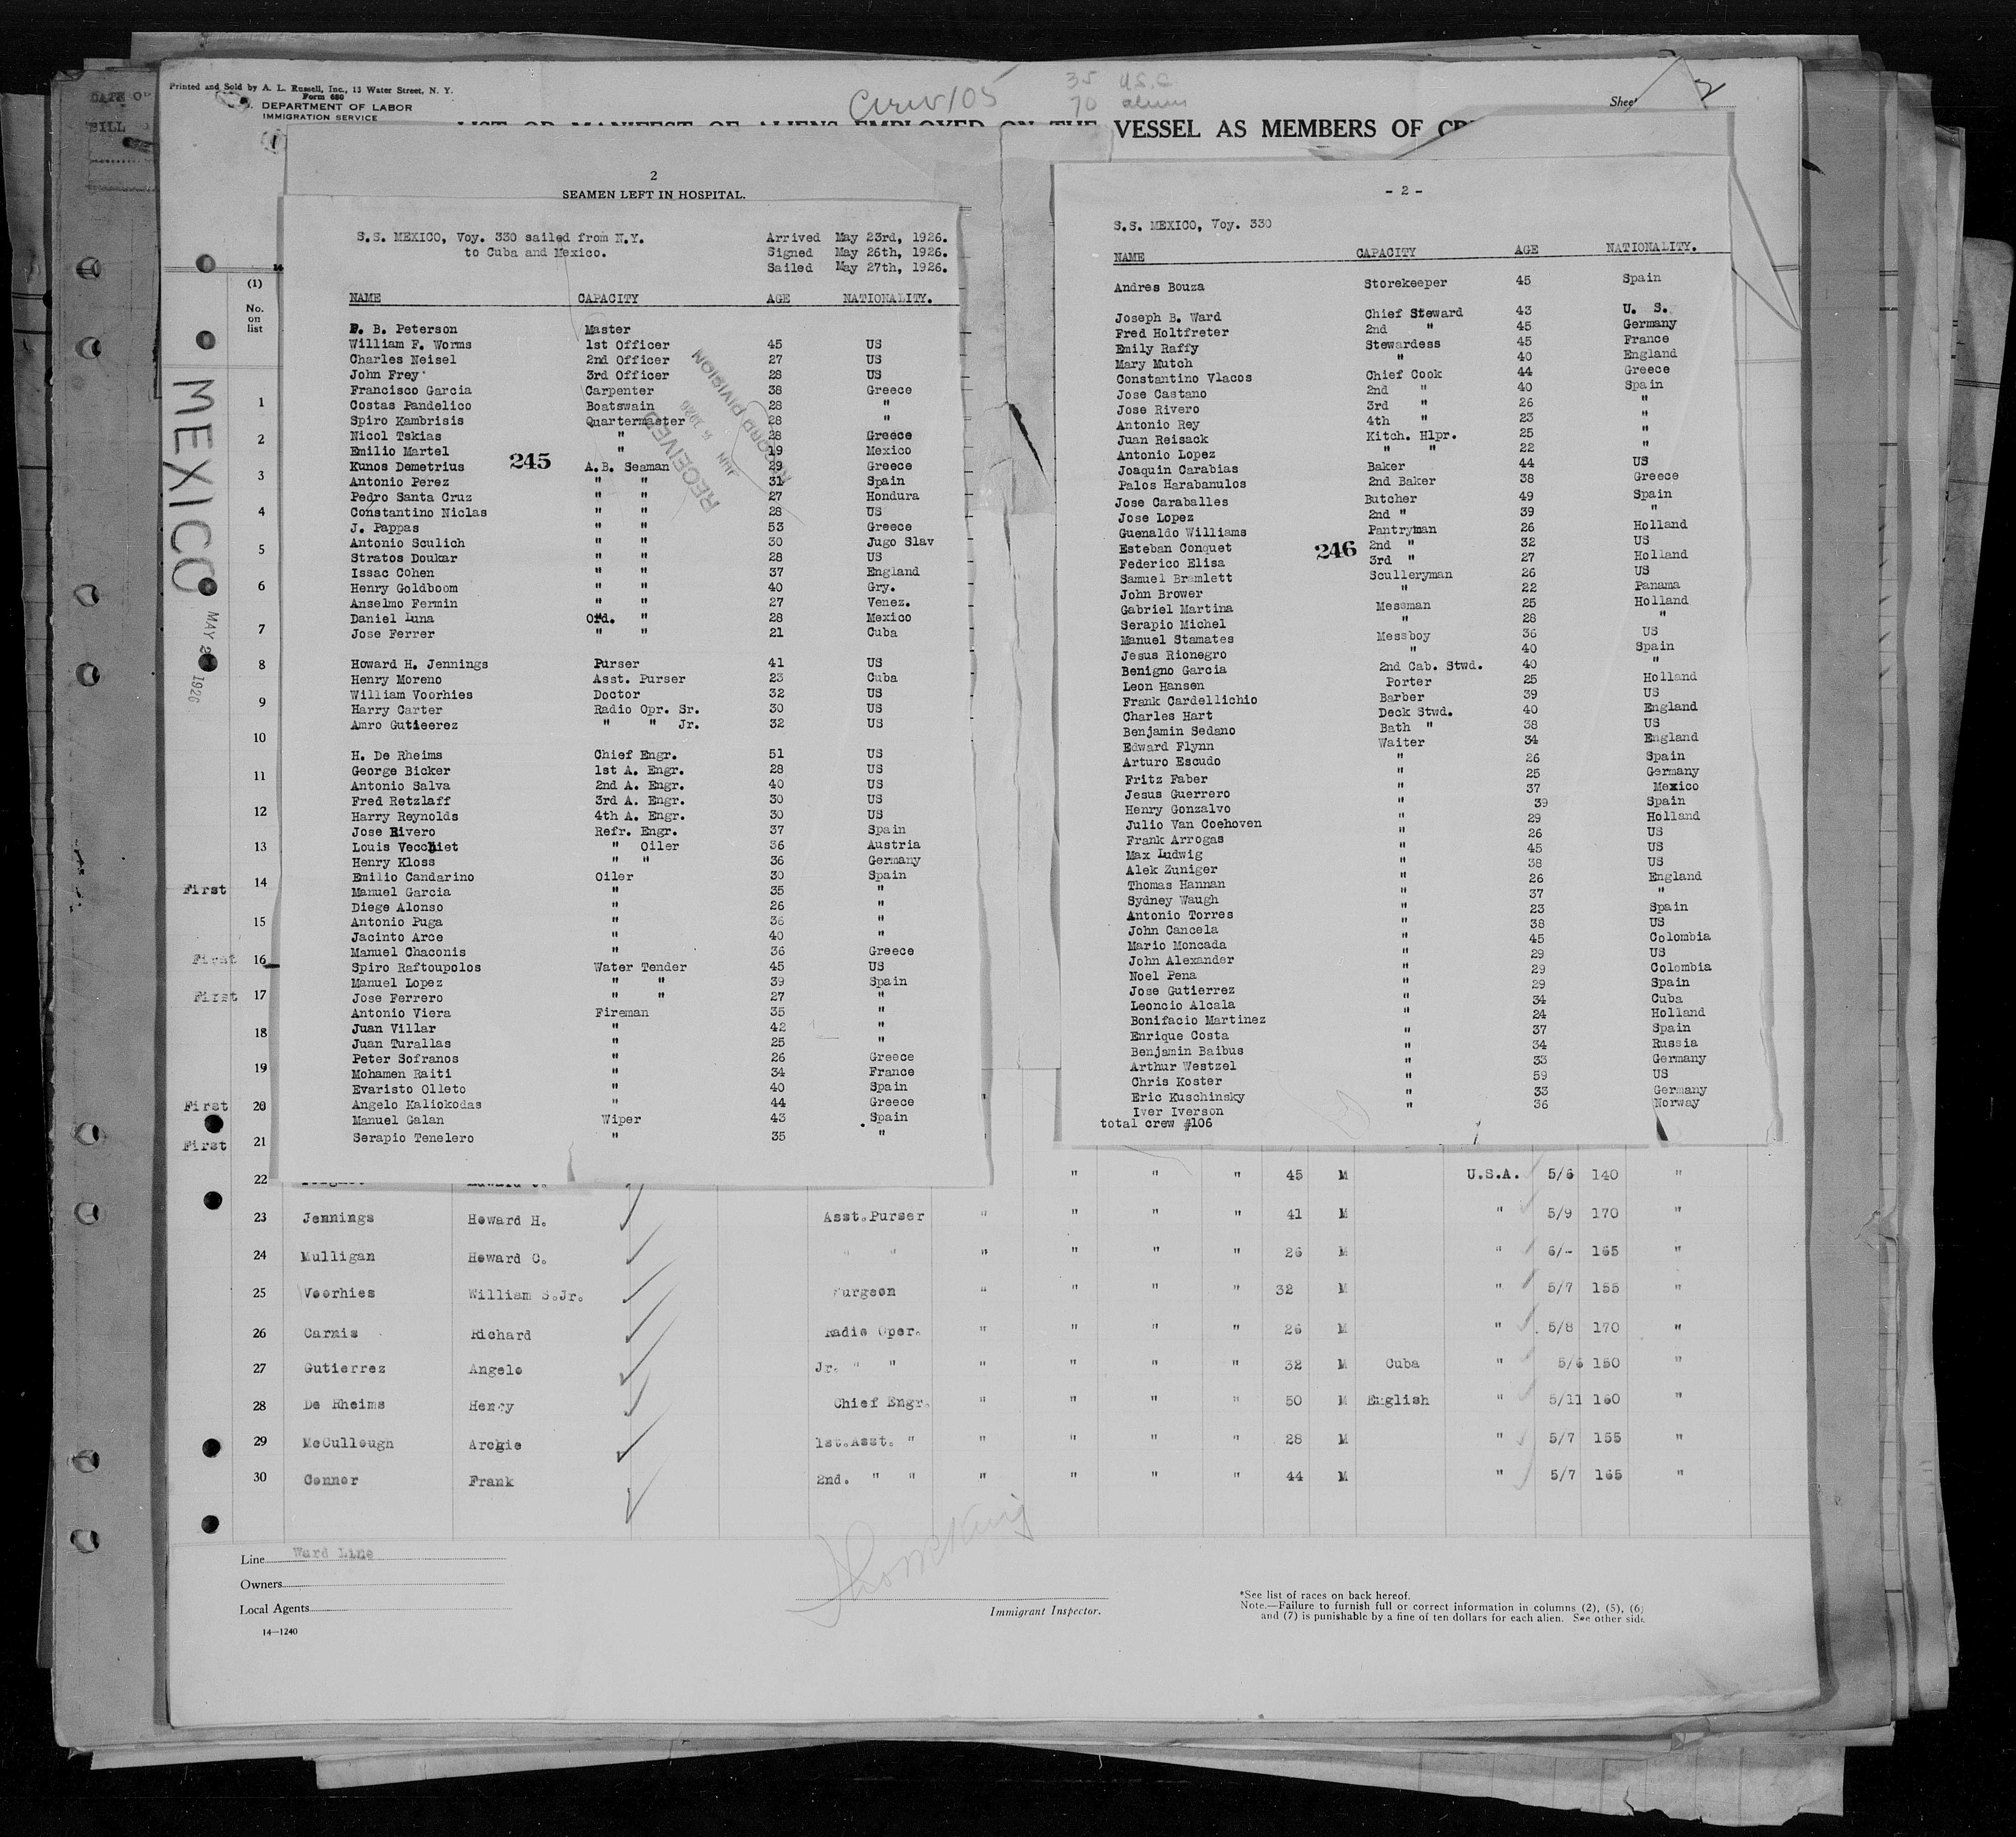 Printed and Sold by A. L. Russell, Inc., 13 Water Street, N. Y.
Form 680
DEPARTMENT OF LABOR
IMMIGRATION SERVICE
35 U.S.C.
70 alien
Sheet 2
LIST OR MANIFEST OF ALIENS EMPLOYED ON THE VESSEL AS MEMBERS OF
DATE OF
BILL
MEXICO
MAY 2 1926
2
SEAMEN LEFT IN HOSPITAL.
S.S. MEXICO, Voy. 330 sailed from N.Y. Arrived May 23rd, 1926.
to Cuba and Mexico. Signed May 26th, 1926.
Sailed May 27th, 1926.
NAME CAPACITY AGE NATIONALITY.
F. B. Peterson Master
William F. Worms 1st Officer 45 US
Charles Neisel 2nd Officer 27 US
John Frey 3rd Officer 28 US
Francisco Garcia Carpenter 38 Greece
Costas Pandelico Boatswain 28 "
Spiro Kambrisis Quartermaster 28 "
Nicol Tskias " 28 Greece
Emilio Martel " 19 Mexico
Kunos Demetrius A.B. Seaman 29 Greece
Antonio Perez " " 31 Spain
Pedro Santa Cruz " " 27 Hondura
Constantino Niclas " " 28 US
J. Pappas " " 53 Greece
Antonio Sculich " " 30 Jugo Slav
Stratos Doukar " " 28 US
Issac Cohen " " 37 England
Henry Goldboom " " 40 Gry.
Anselmo Fermin " " 27 Venez.
Daniel Luna Ord. " 28 Mexico
Jose Ferrer " " 21 Cuba
Howard H. Jennings Purser 41 US
Henry Moreno Asst. Purser 23 Cuba
William Voorhies Doctor 32 US
Harry Carter Radio Opr. Sr. 30 US
Amro Gutieerez " " Jr. 32 US
H. De Rheims Chief Engr. 51 US
George Bicker 1st A. Engr. 28 US
Antonio Salva 2nd A. Engr. 40 US
Fred Retzlaff 3rd A. Engr. 30 US
Harry Reynolds 4th A. Engr. 30 US
Jose Rivero Refr. Engr. 37 Spain
Louis Vecchiet " Oiler 36 Austria
Henry Kloss " " 36 Germany
Emilio Candarino Oiler 30 Spain
Manuel Garcia " 35 "
Diege Alonso " 26 "
Antonio Puga " 36 "
Jacinto Arce " 40 "
Manuel Chaconis " 36 Greece
Spiro Raftoupolos Water Tender 45 US
Manuel Lopez " " 39 Spain
Jose Ferrero " " 27 "
Antonio Viera Fireman 35 "
Juan Villar " 42 "
Juan Turallas " 25 "
Peter Sofranos " 26 Greece
Mohamen Raiti " 34 France
Evaristo Olleto " 40 Spain
Angelo Kaliokodas " 44 Greece
Manuel Galan Wiper 43 Spain
Serapio Tenelero " 35 "
245
RECEIVED
JUN 5 1926
RECORD DIVISION
- 2 -
S.S. MEXICO, Voy. 330
NAME CAPACITY AGE NATIONALITY.
Andres Bouza Storekeeper 45 Spain
Joseph B. Ward Chief Steward 43 U. S.
Fred Holtfreter 2nd " 45 Germany
Emily Raffy Stewardess 45 France
Mary Mutch " 40 England
Constantino Vlacos Chief Cook 44 Greece
Jose Castano 2nd " 40 Spain
Jose Rivero 3rd " 26 "
Antonio Rey 4th " 23 "
Juan Reisack Kitch. Hlpr. 25 "
Antonio Lopez " " 22 "
Joaquin Carabias Baker 44 US
Palos Harabanulos 2nd Baker 38 Greece
Jose Caraballes Butcher 49 Spain
Jose Lopez 2nd " 39 "
Guenaldo Williams Pantryman 26 Holland
Esteban Conquet 2nd " 32 US
Federico Elisa 3rd " 27 Holland
Samuel Bramlett Sculleryman 26 US
John Brower " 22 Panama
Gabriel Martina Messman 25 Holland
Serapio Michel " 28 "
Manuel Stamates Messboy 36 US
Jesus Rionegro " 40 Spain
Benigno Garcia 2nd Cab. Stwd. 40 "
Leon Hansen Porter 25 Holland
Frank Cardellichio Barber 39 US
Charles Hart Deck Stwd. 40 England
Benjamin Sedano Bath " 38 US
Edward Flynn Waiter 34 England
Arturo Escudo " 26 Spain
Fritz Faber " 25 Germany
Jesus Guerrero " 37 Mexico
Henry Gonzalvo " 39 Spain
Julio Van Coehoven " 29 Holland
Frank Arrogas " 26 US
Max Ludwig " 45 US
Alek Zuniger " 38 US
Thomas Hannan " 26 England
Sydney Waugh " 37 "
Antonio Torres " 23 Spain
John Cancela " 38 US
Mario Moncada " 45 Colombia
John Alexander " 29 US
Noel Pena " 29 Colombia
Jose Gutierrez " 29 Spain
Leoncio Alcala " 34 Cuba
Bonifacio Martinez " 24 Holland
Enrique Costa " 37 Spain
Benjamin Baibus " 34 Russia
Arthur Westzel " 33 Germany
Chris Koster " 59 US
Eric Kuschinsky " 33 Germany
Iver Iverson " 36 Norway
total crew #106
246
(1)
No. on list
1
2
3
4
5
6
7
8
9
10
11
12
13
First 14
15
First 16
First 17
18
19
First 20
First 21
22 " " " 45 M U.S.A. 5/6 140 "
23 Jennings Howard H. Asst.Purser " " " " 41 M " 5/9 170 "
24 Mulligan Howard C. " " " " " " 26 M " 6/- 165 "
25 Voorhies William S.Jr. Surgeon " " " " 32 M " 5/7 155 "
26 Carnis Richard Radio Oper. " " " " 26 M " 5/8 170 "
27 Gutierrez Angelo Jr. " " " " " " 32 M Cuba " 5/6 150 "
28 De Rheims Henry Chief Engr. " " " " 50 M English " 5/11 160 "
29 McCullough Archie 1st.Asst. " " " " " 28 M " 5/7 155 "
30 Connor Frank 2nd. " " " " " " 44 M " 5/7 165 "
Line Ward Line
Owners
Local Agents
14—1240
Immigrant Inspector.
*See list of races on back hereof.
Note.—Failure to furnish full or correct information in columns (2), (5), (6)
and (7) is punishable by a fine of ten dollars for each alien. See other side.